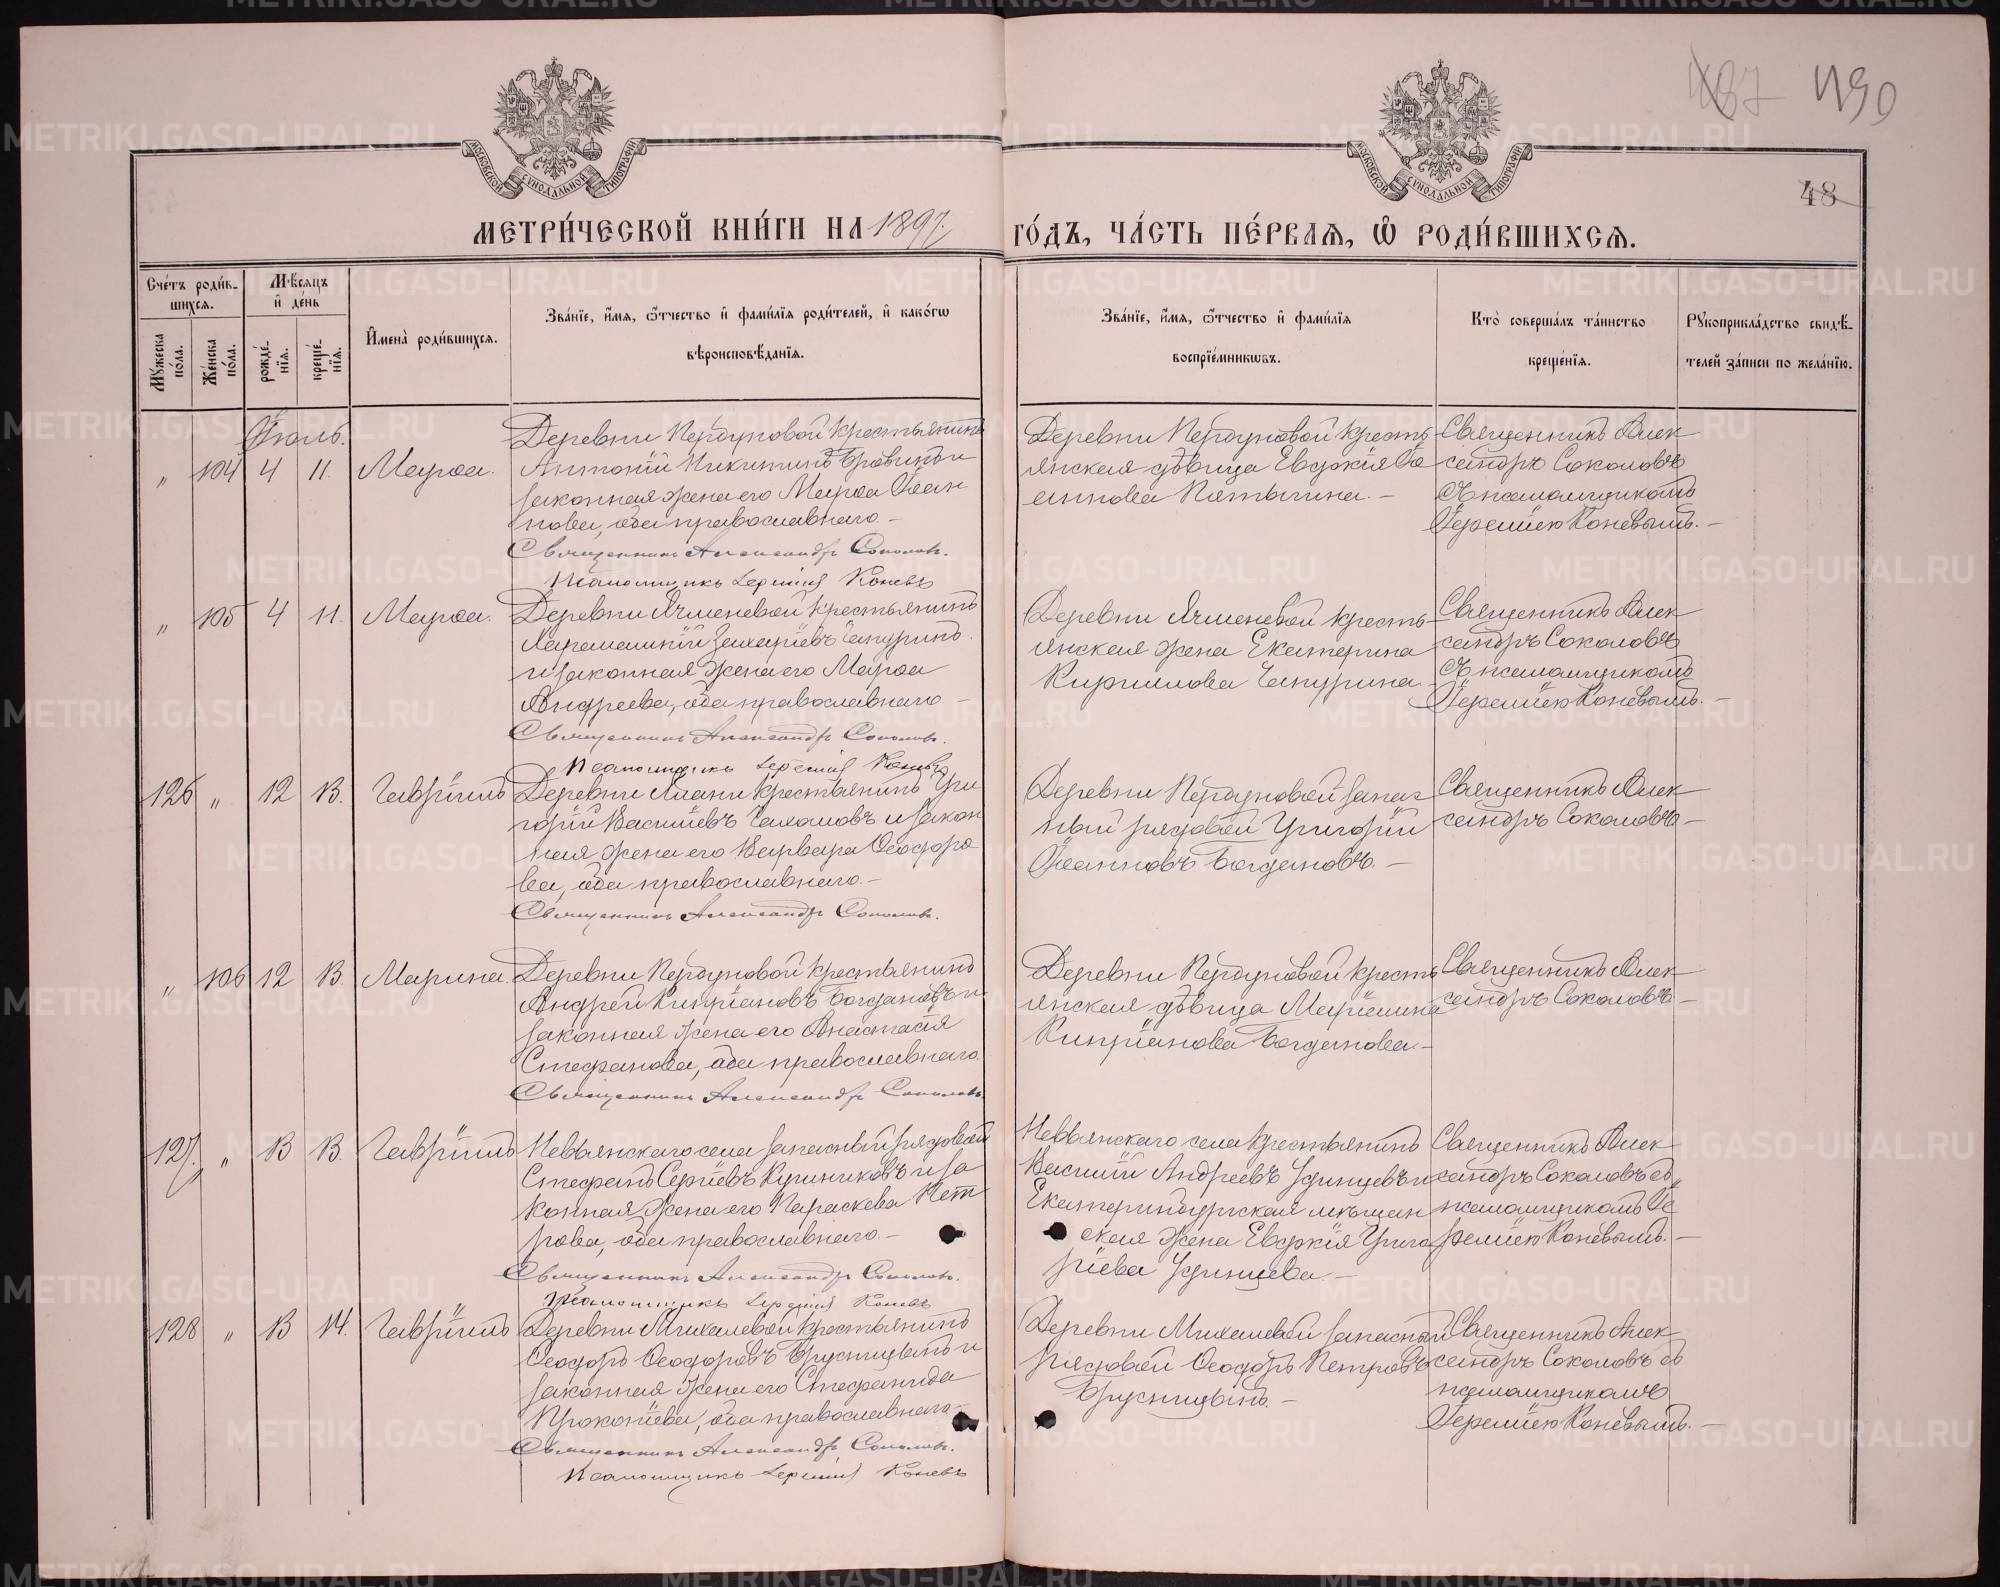 487 490
48
МОСКОВСКОЙ СѴНОДАЛЬНОЙ ТИПОГРАФІИ
МОСКОВСКОЙ СѴНОДАЛЬНОЙ ТИПОГРАФІИ
МЕТРИ́ЧЕСКОЙ КНИ́ГИ НА 1897 ГО́ДЪ, ЧА́СТЬ ПЕ́РВАЯ, Ѡ РОДИ́ВШИХСЯ.
Сче́тъ роди́в-
шихся.
Мѣ́сяцъ
и де́нь
Му́жеска по́ла.
Же́нска по́ла.
рожде́нїя.
креще́нїя.
Имена̀ роди́вшихся.
Зва́нїе, и́мя, ѻ҆́тчество и фами́лїя роди́телей, и како́гѡ
вѣроисповѣ́данїя.
Зва́нїе, и́мя, ѻ҆́тчество и фами́лїя
воспрїе́мникѡвъ.
Кто̀ соверша́лъ та́инство
креще́нїя.
Рꙋкоприкла́дство свидѣ́-
телей за́писи по жела́нїю.
Іюль.
„ 104 4 11. Марѳа.
Деревни Пердуновой крестьянинъ
Антоній Никитинъ и
законная жена его Марѳа Іоан
нова, оба православнаго. –
Священникъ Александръ Соколовъ.
Псаломщикъ Іеремія Коневъ
Деревни Пердуновой кресть
янская дѣвица Евдокія Іо
аннова Пятыгина. –
Священникъ Алек
сандръ Соколовъ
съ псаломщикомъ
Іереміею Коневымъ. –
„ 105 4 11. Марѳа.
Деревни Ячменевой крестьянинъ
Харлампій Захаріевъ Чепуринъ
и законная жена его Марѳа
Андреева, оба православнаго –
Священникъ Александръ Соколовъ.
Псаломщикъ Іеремія Коневъ
Деревни Ячменевой кресть
янская жена Екатерина
Кириллова Чепурина
Священникъ Алек
сандръ Соколовъ
съ псаломщикомъ
Іереміею Коневымъ. –
126 „ 12 13. Гавріилъ
Деревни крестьянинъ Гри
горій Васильевъ и закон
ная жена его Варвара Ѳеодоро
ва, оба православнаго. –
Священникъ Александръ Соколовъ.
Деревни Пердуновой запас
ный рядовой Григорій
Іоанновъ Богдановъ. –
Священникъ Алек
сандръ Соколовъ –
„ 106 12 13. Марина.
Деревни Пердуновой крестьянинъ
Андрей Кипріановъ Богдановъ и
законная жена его Анастасія
Стефанова, оба православнаго.
Священникъ Александръ Соколовъ.
Деревни Пердуновой кресть
янская дѣвица Маріамна
Кипріанова Богданова. –
Священникъ Алек
сандръ Соколовъ –
127. „ 13 13. Гавріилъ
Невьянскаго села запасный рядовой
Стефанъ Сергіевъ и за
конная жена его Параскева Пет
рова, оба православнаго. –
Священникъ Александръ Соколовъ.
Псаломщикъ Іеремія Коневъ
Невьянскаго села крестьянинъ
Василій Андреевъ Удинцевъ и
Екатеринбургская мѣщан
ская жена Евдокія Григо
ріева Удинцева. –
Священникъ Алек
сандръ Соколовъ съ
псаломщикомъ Іе
реміею Коневымъ. –
128 „ 13 14. Гавріилъ
Деревни Михалевой крестьянинъ
Ѳеодоръ Ѳеодоровъ Брусницынъ и
законная жена его Стефанида
Прокопіева, оба православнаго –
Священникъ Александръ Соколовъ.
Псаломщикъ Іеремія Коневъ
Деревни Михалевой запасный
рядовой Ѳеодоръ Петровъ
Брусницынъ. –
Священникъ Алек
сандръ Соколовъ съ
псаломщикомъ
Іереміею Коневымъ. –
METRIKI.GASO-URAL.RU